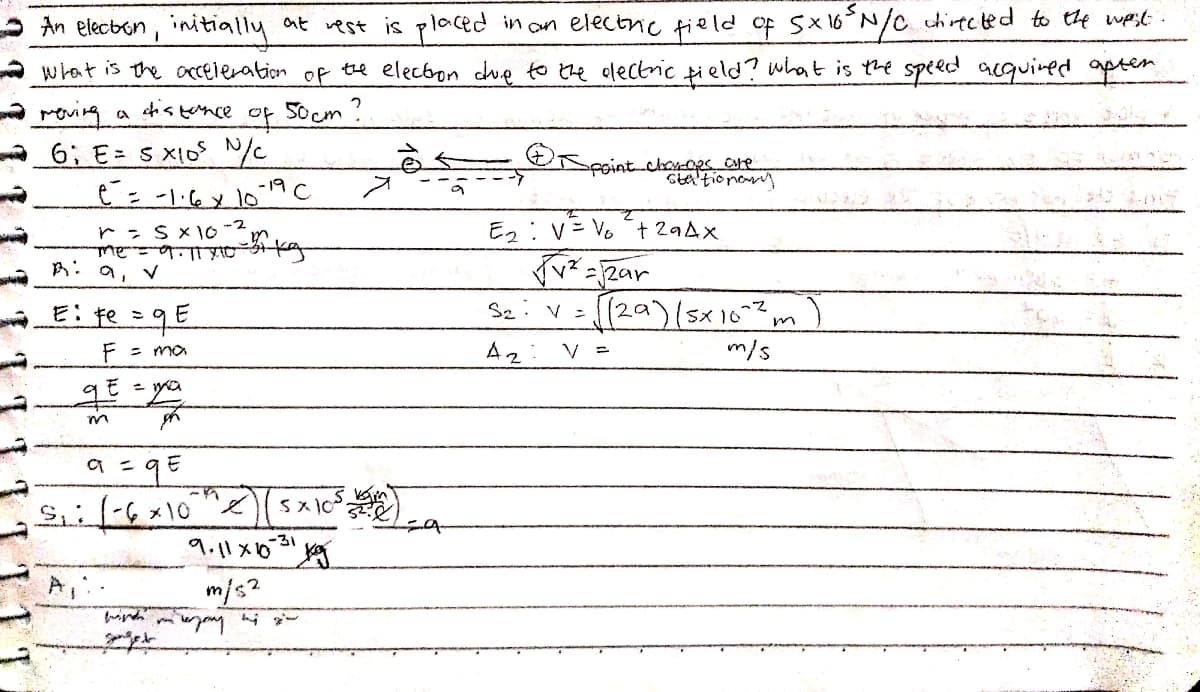 An electron, initially at rest is placed in an electric field of 5x10⁵ N/C directed to the west.
What is the acceleration of the electron due to the electric field? What is the speed acquired after
moving a distance of 50cm?
G: E = 5 x10⁵ N/C
e⁻ = -1.6 x 10⁻¹⁹ C
r = 5 x 10⁻² m
me = 9.11 x10⁻³¹ kg
R: a, v
E: Fe = qE
F = ma
qE = ma
m m
a = qE
S₁: (-6 x10⁻¹⁹ C)(5x10⁵ kgm/s²·C) = a
9.11 x 10⁻³¹ kg
A₁:
m/s²
⊖ ⊕ point charges are
stationary
a
E₂: v² = V₀² + 2aΔx
√v² = √2ar
S₂: v = √(2a)(5x10⁻² m)
A₂: V = m/s